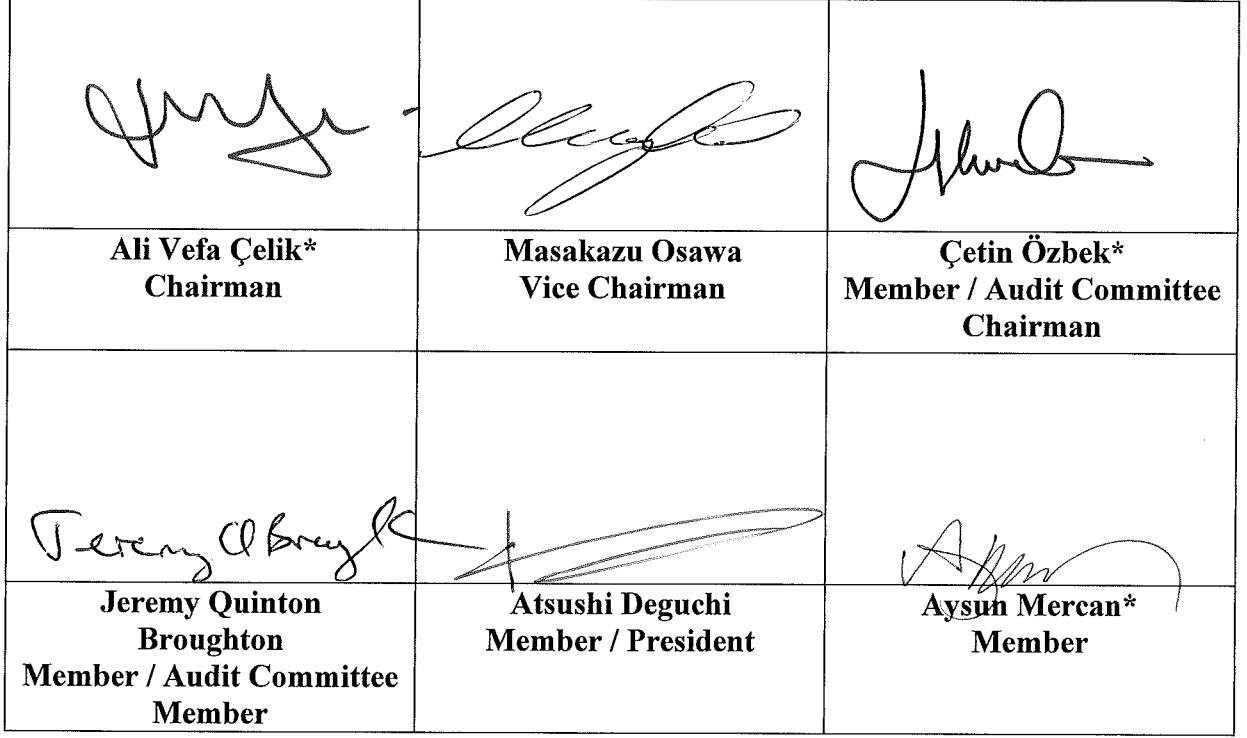 Ali Vefa Çelik*
Chairman
Masakazu Osawa
Vice Chairman
Çetin Özbek*
Member / Audit Committee
Chairman
Jeremy Quinton
Broughton
Member / Audit Committee
Member
Atsushi Deguchi
Member / President
Aysun Mercan*
Member